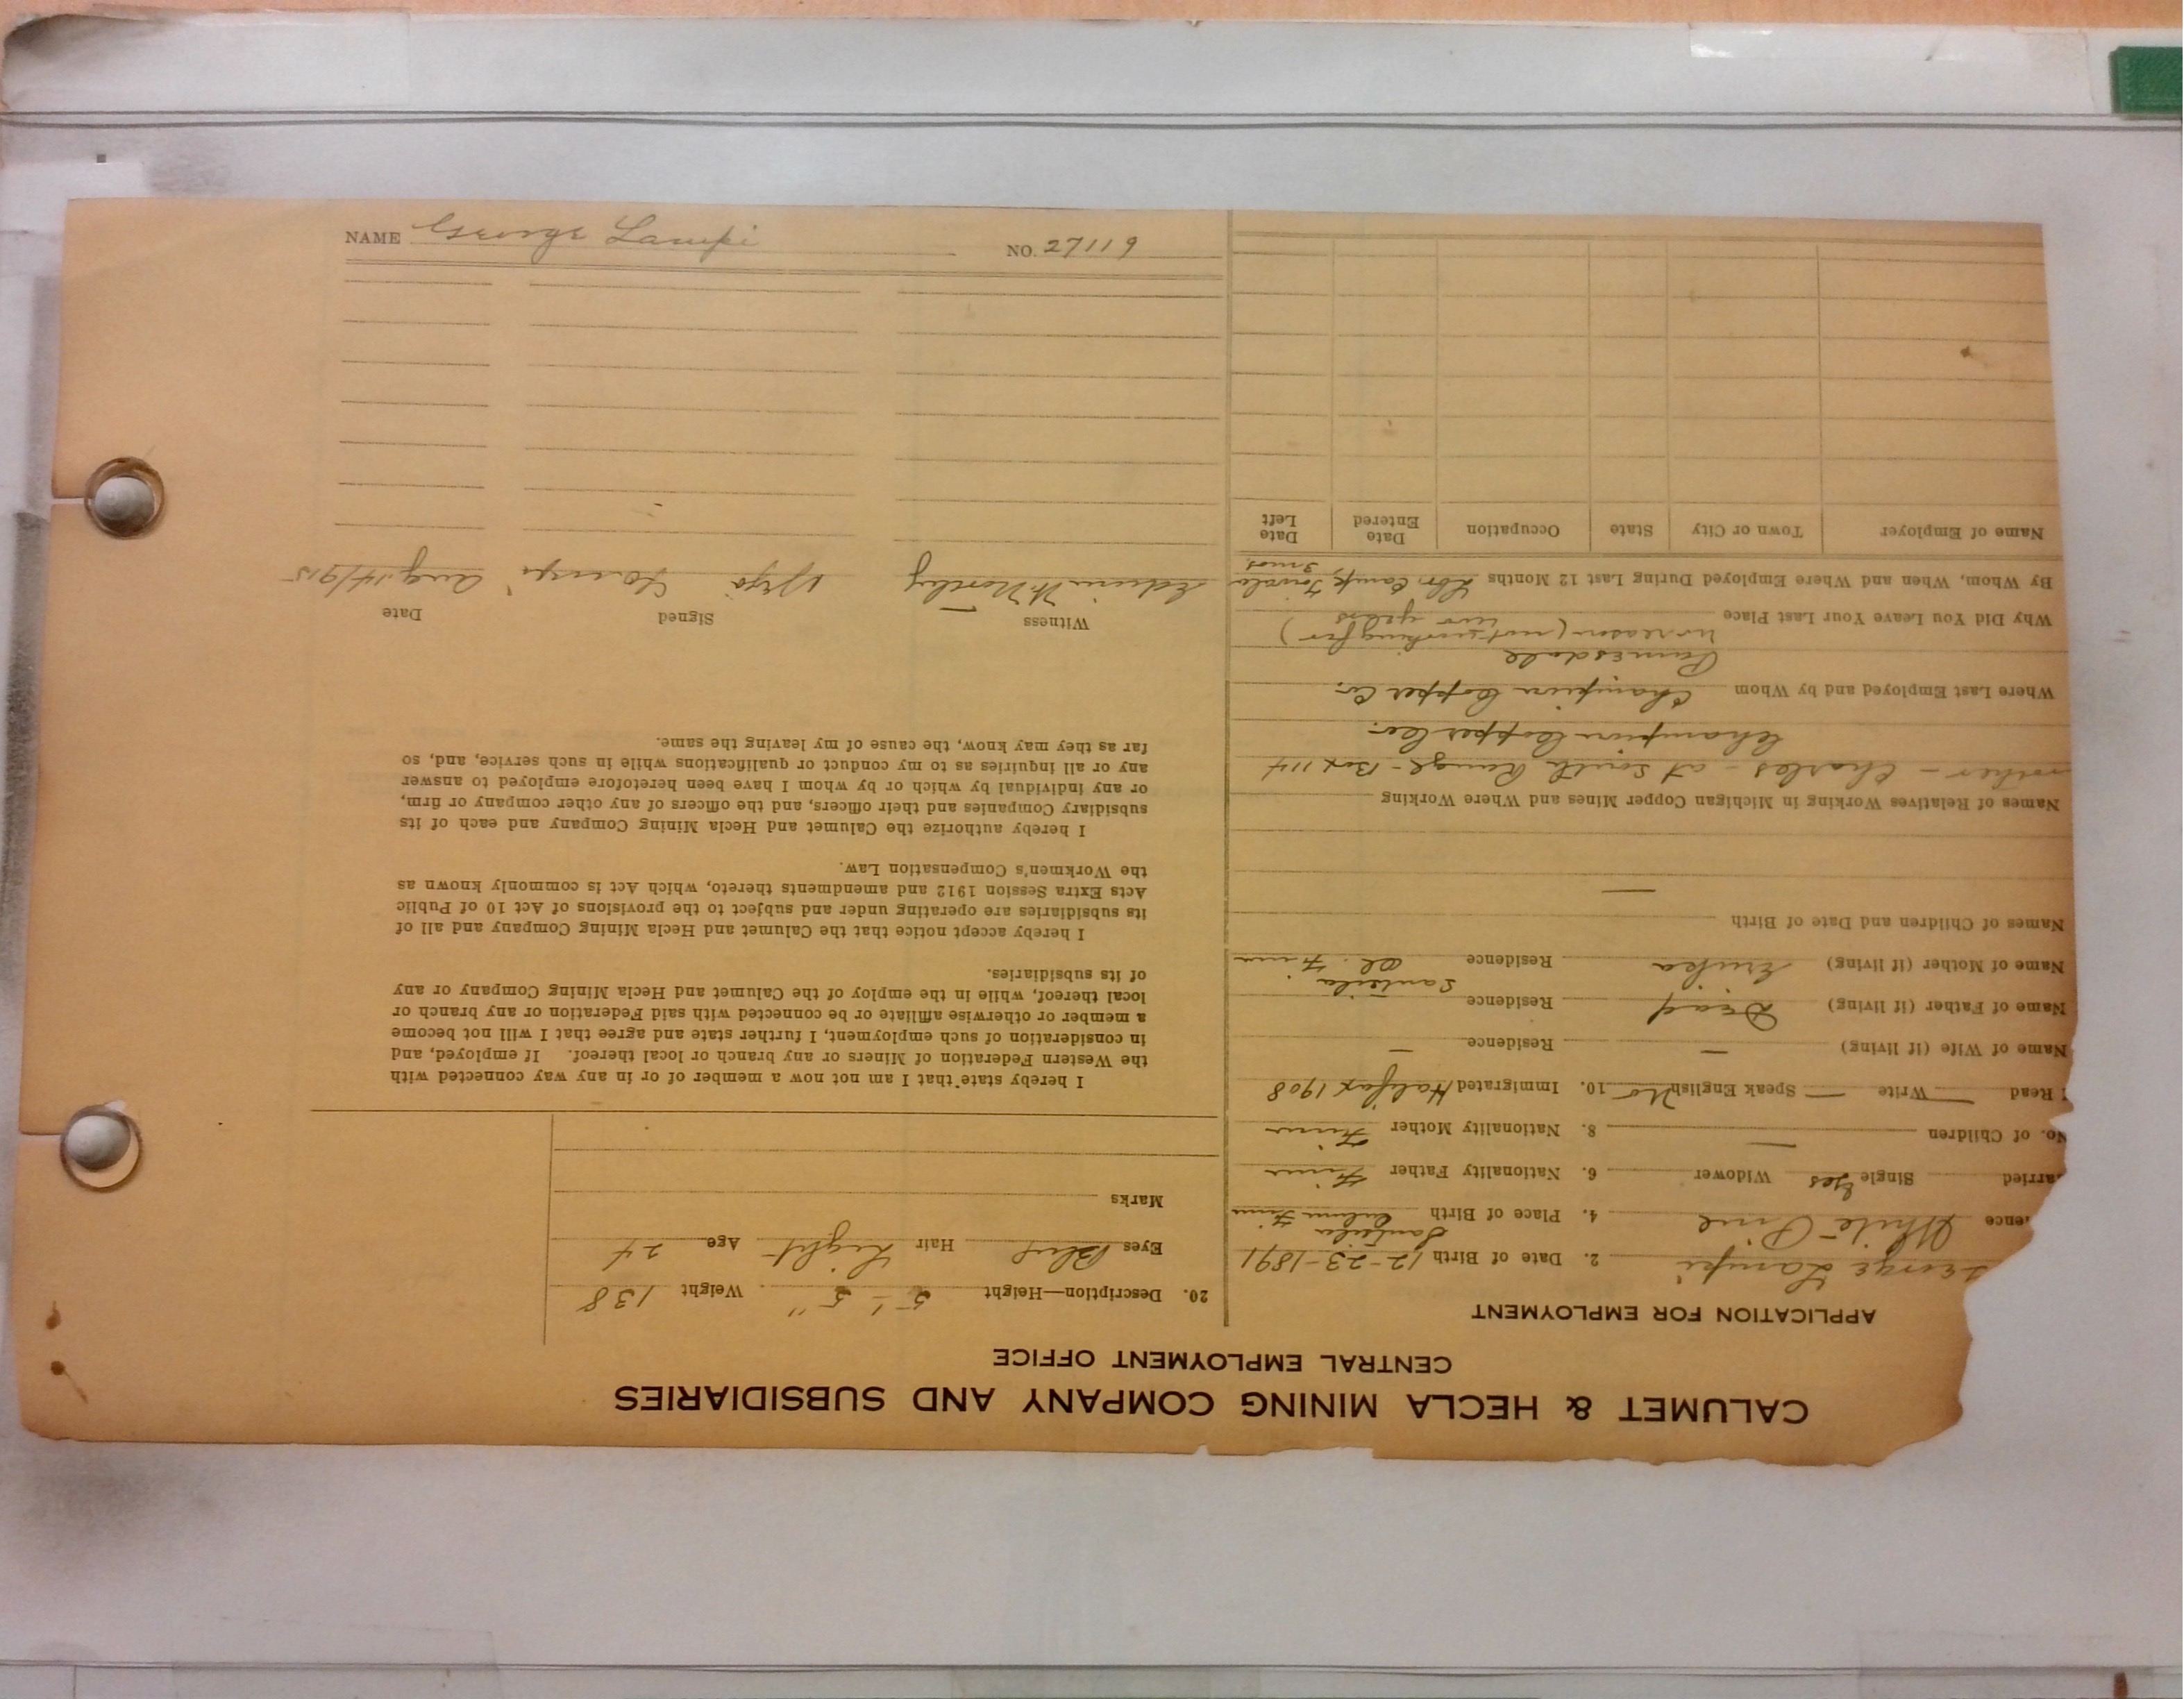 CALUMET & HECLA MINING COMPANY AND SUBSIDIARIES
CENTRAL EMPLOYMENT OFFICE
APPLICATION FOR EMPLOYMENT
George Lampi 2. Date of Birth 12-23-1891
ence White Pine 4. Place of Birth
arried Single Yes Widower 6. Nationality Father Finn
No. of Children — 8. Nationality Mother Finn
Read — Write — Speak English No 10. Immigrated Halifax 1908
Name of Wife (if living) — Residence —
Name of Father (if living) Dead Residence
Name of Mother (if living) Erika Residence Finn
Names of Children and Date of Birth
—
Names of Relatives Working in Michigan Copper Mines and Where Working
rother - Charles - at South Range - Box 114
Champion Copper Co.
Where Last Employed and by Whom Champion Copper Co.
Painesdale
Why Did You Leave Your Last Place no reason (not working for
two years)
By Whom, When and Where Employed During Last 12 Months Lbr. Camp, Toivola
3 mos.
Name of Employer Town or City State Occupation Date Entered Date Left
20. Description—Height 5'-5" Weight 138
Eyes Blue Hair Light Age 24
Marks
I hereby state that I am not now a member of or in any way connected with
the Western Federation of Miners or any branch or local thereof. If employed, and
in consideration of such employment, I further state and agree that I will not become
a member or otherwise affiliate or be connected with said Federation or any branch or
local thereof, while in the employ of the Calumet and Hecla Mining Company or any
of its subsidiaries.
I hereby accept notice that the Calumet and Hecla Mining Company and all of
its subsidiaries are operating under and subject to the provisions of Act 10 of Public
Acts Extra Session 1912 and amendments thereto, which Act is commonly known as
the Workmen's Compensation Law.
I hereby authorize the Calumet and Hecla Mining Company and each of its
subsidiary Companies and their officers, and the officers of any other company or firm,
or any individual by which or by whom I have been heretofore employed to answer
any or all inquiries as to my conduct or qualifications while in such service, and, so
far as they may know, the cause of my leaving the same.
Witness Signed Date
Edwin W. Yrjö Lampi Aug. 14/915
NAME George Lampi NO. 27119